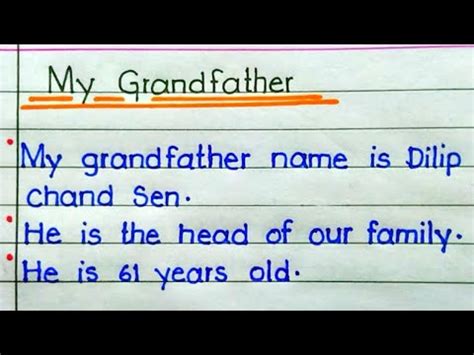 My Grandfather
• My grandfather name is Dilip
chand Sen.
• He is the head of our family.
• He is 61 years old.